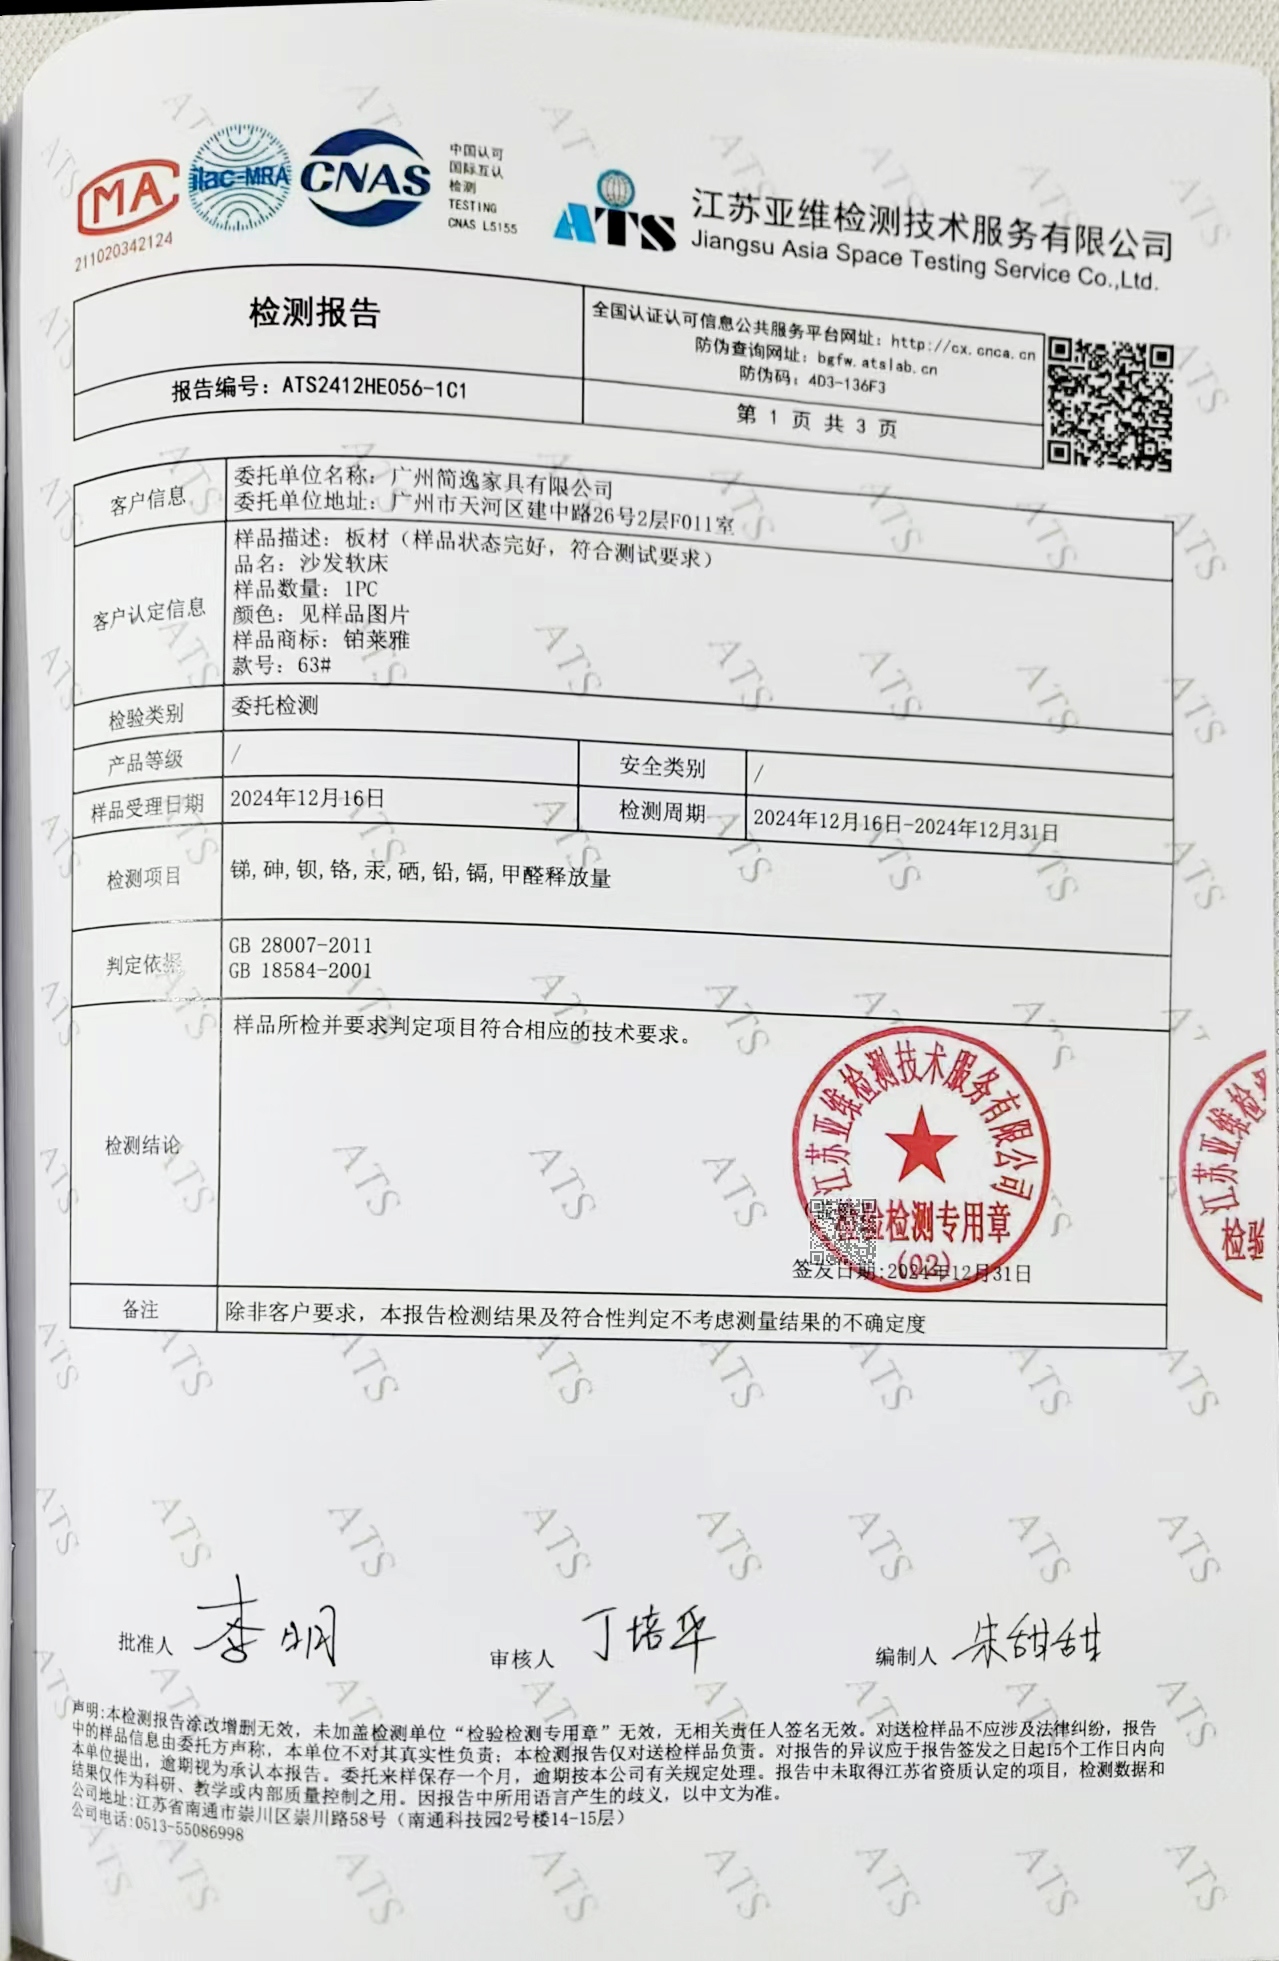 MA
211020342124
ilac-MRA
CNAS
中国认可
国际互认
检测
TESTING
CNAS L5155
ATS
江苏亚维检测技术服务有限公司
Jiangsu Asia Space Testing Service Co.,Ltd.
检测报告
报告编号：ATS2412HE056-1C1
全国认证认可信息公共服务平台网址：http://cx.cnca.cn
防伪查询网址：bgfw.atslab.cn
防伪码：4D3-136F3
第 1 页 共 3 页
客户信息
委托单位名称：广州简逸家具有限公司
委托单位地址：广州市天河区建中路26号2层F011室
客户认定信息
样品描述：板材（样品状态完好，符合测试要求）
品名：沙发软床
样品数量：1PC
颜色：见样品图片
样品商标：铂莱雅
款号：63#
检验类别
委托检测
产品等级
/
安全类别
/
样品受理日期
2024年12月16日
检测周期
2024年12月16日-2024年12月31日
检测项目
锑,砷,钡,铬,汞,硒,铅,镉,甲醛释放量
判定依据
GB 28007-2011
GB 18584-2001
检测结论
样品所检并要求判定项目符合相应的技术要求。
江苏亚维检测技术服务有限公司
检验检测专用章
(02)
签发日期:2024年12月31日
江苏亚维检测
检验
备注
除非客户要求，本报告检测结果及符合性判定不考虑测量结果的不确定度
批准人 李明
审核人 丁培华
编制人 朱甜甜
声明:本检测报告涂改增删无效，未加盖检测单位“检验检测专用章”无效，无相关责任人签名无效。对送检样品不应涉及法律纠纷，报告
中的样品信息由委托方声称，本单位不对其真实性负责；本检测报告仅对送检样品负责。对报告的异议应于报告签发之日起15个工作日内向
本单位提出，逾期视为承认本报告。委托来样保存一个月，逾期按本公司有关规定处理。报告中未取得江苏省资质认定的项目，检测数据和
结果仅作为科研、教学或内部质量控制之用。因报告中所用语言产生的歧义，以中文为准。
公司地址:江苏省南通市崇川区崇川路58号（南通科技园2号楼14-15层）
公司电话:0513-55086998